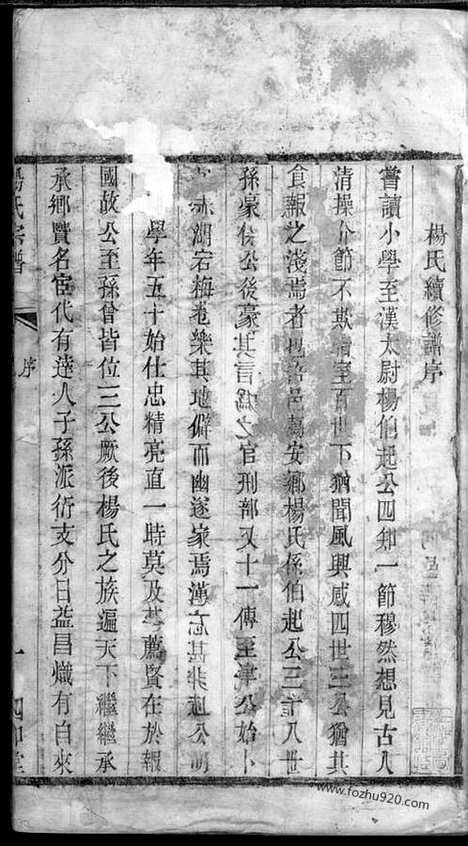 楊氏續修譜序
嘗讀小學至漢太尉楊伯起公四知一節穆然想見古人
清操介節不欺暗室百世下猶聞風興感四世三公猶其
食報之淺焉者也 邑萬安鄉楊氏係伯起公三十八世
孫豪侯公後豪 言爲之官刑部又十一傳至津公始卜
赤湖宕梅巷樂其地僻而幽遂家焉謹 起公明
學年五十始仕忠精亮直一時莫及其薦賢在於報
國故公至孫曾皆位三公厥後楊氏之族遍天下繼繼承
承鄉賢名宦代有達人子孫派衍支分日益昌熾有自來
楊氏宗譜
序
一
四知堂
www.fozhu920.com